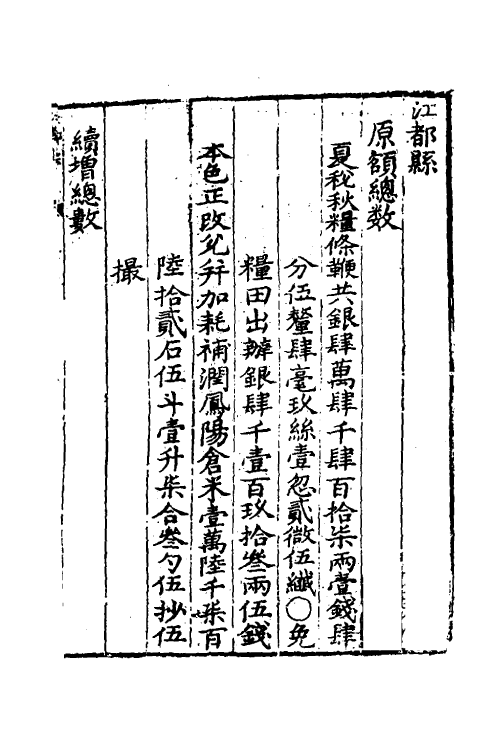 江都縣
原額總数
夏稅秋糧條鞭共銀肆萬肆千肆百拾柒兩壹錢肆
分伍釐肆毫玖絲壹忽貳微伍纖○免
糧田出辦銀肆千壹百玖拾叁兩伍錢
本色正改兊并加耗補潤鳳陽倉米壹萬陸千柒百
陸拾貳石伍斗壹升柒合叁勺伍抄伍
撮
續增總數